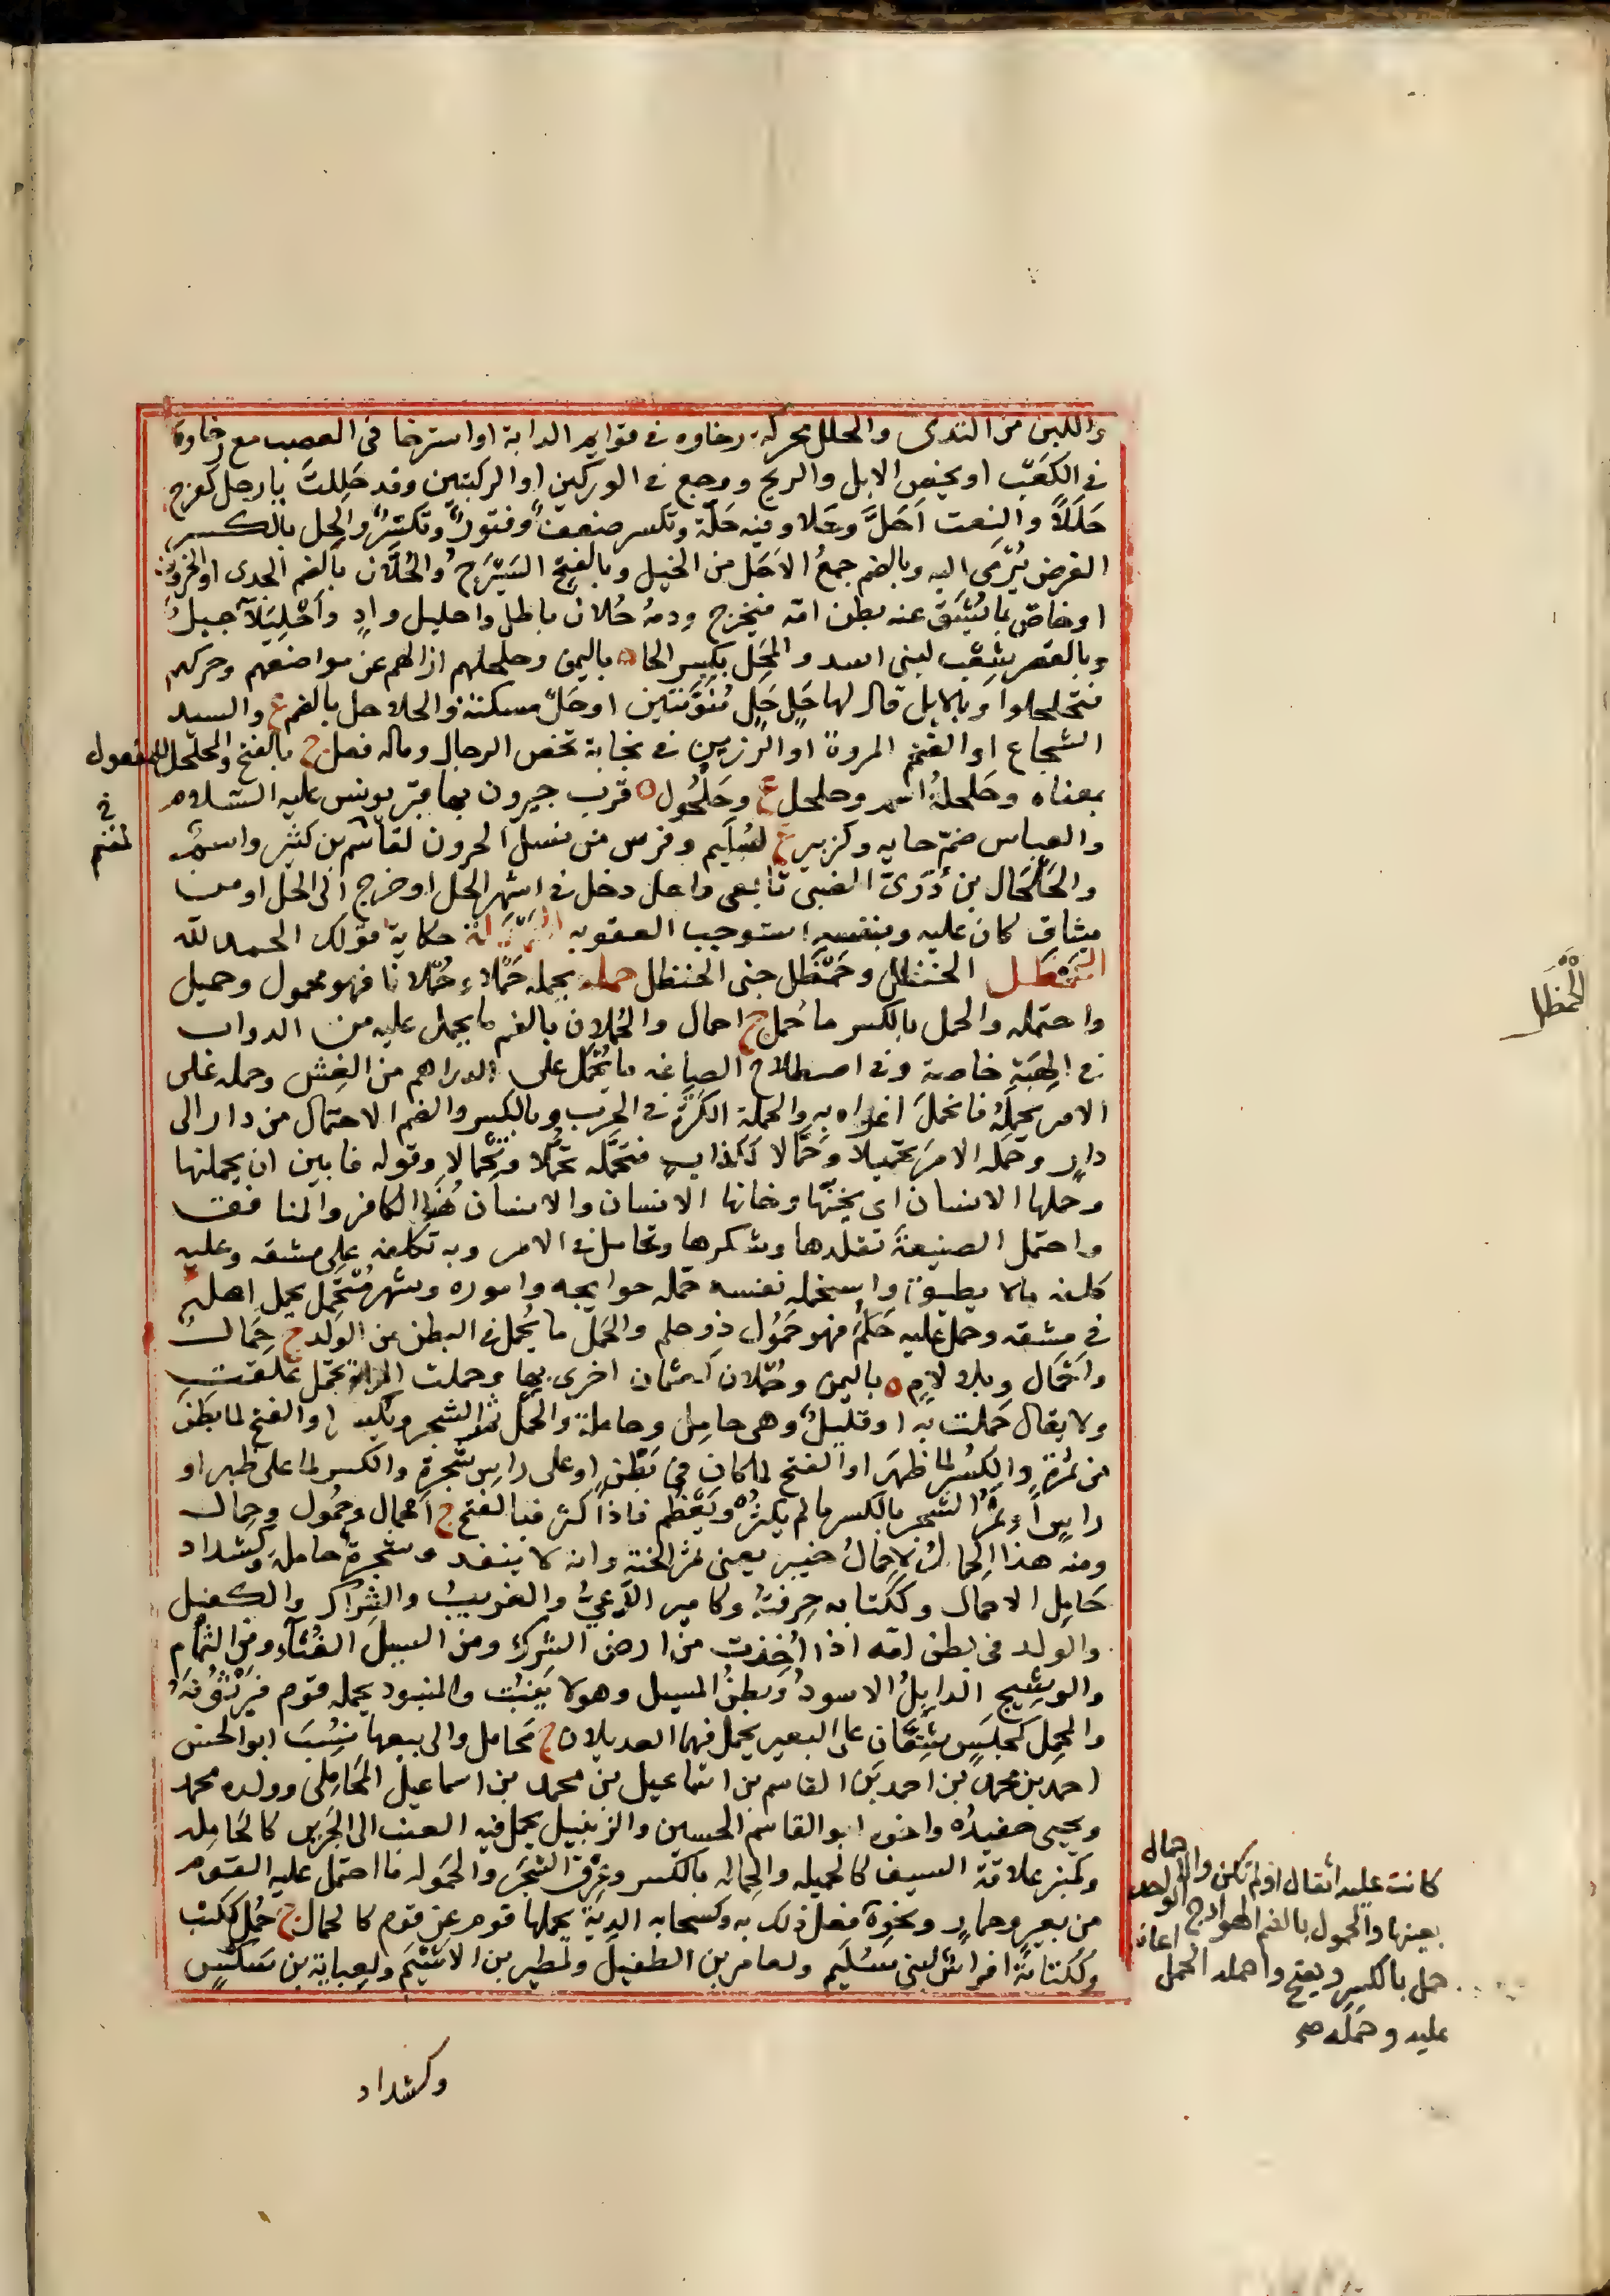 واللبن من الثدى والحلل محركة رخاوه فى قوايم الدابة او استرخا فى العصب مع رخاوة
فى الكَعْبِ او يخص الابل والريح ووجع فى الوركين او الركبتين وقد حَلِلتَ يا رجل كفرح
حَلَلاً والنعت اَحَلُّ وحَلا وفيه حَلّة وتكسر ضعف وفتور وتكسّر والحِل بالكسر
الغرض يُرْمَى اليه وبالضم جمعُ الاَحَل من الخيل وبالفتح الشَيْرَج والحُلّان بالضم الجدى او الخروف
او خاصّ بما يُشَق عنه بطن امّه فيخرج ودمه حُلان باطل واحليل وادٍ واِحْلِيلَآ جبل
وبالقصر شِعْب لبنى اسد والمَحِل بكسر الحا ه باليمن وحلحلهم ازالهم عن مواضعهم وحركهم
فتحلحلوا وبالابل قال لها حَلٍ حَلٍ مُنَوّنتين او حَلْ مسكنة والحلاحل بالضم ع والسيد
الشجاع او الضخم المروة او الرزين فى نخابة تخص الرجال وماله فعل ج بالفتح والمحلحل للمفعول
بمعناه وحَلحلةُ اسم وحلحل ع وحَلْحُول ه قرب جيرون بها قبر يونس عليه السلام
والعباس ضمّ حايه وكزبير ع لسُلَيم وفرس من نسل الحرون لقاسم بن كثير واسم
والحَلْحَال بن دُرّىّ الضبى تابعى واحل دخل فى اشهر الحل او خرج الى الحل او من
ميثاق كان عليه وبنفسه استوجب العقوبه حكاية قولك الحمد لله
الحَمْظَل الحنظل وحَمْظَل جنى الحنظل حمله يحمله حَمْلاً وحُمْلانًا فهو محمول وحميل
واحتمله والحمل بالكسر ما حُمل ج احمال والحُملان بالضم ما يحمل عليه من الدواب
فى الهِبَةِ خاصة وفى اصطلاح الصياغه ما يُحْمَل على الدراهم من الغِش وحمله على
الامر يَحمِلُه فانحمل اغراه به والحملة الكَرَّة فى الحرب وبالكسر والضم الاحتمال من دار الى
دارٍ وحَمَّله الامرَ تحميلًا وحِمَّالا ككذاب فتحمَّله تحمُّلا وتِحِمَّالا وقوله فابين ان يحملنها
وحملها الانسان اى يخنّها وخانها الانسان والانسان هُنا الكافر والمنافق
واحتمل الصنيعةَ تقلدها وشكرها وتحامل فى الامر وبه تكلفه على مشقه وعليه
كلفه مالا يطيق واستحمله نفسه حَمّله حوايجه واموره وشهر مُسْتَحمِل يحمل اهله
فى مشقه وحمل عليه حَلُم فهو حَمُول ذو حلم والحَمْل ما يُحمل فى البطن من الولد ج حِمَال
واَحْمَال وبلا لام ه باليمن وحُمْلان كعثمان اخرى بها وحملت المراة تحمل علقت
ولا يقال حَملت به او قليل وهى حامل وحاملة والحمل ثمر الشجر ويكسر او الفتح لما بَطَنَ
من ثمرة والكسر لما ظهر او الفتح لما كان فى بَطْنٍ او على راس شجرة والكسر لما على ظهر او
راسٍ او ثمر الشجر بالكسر ما لم يكثر ويَعْظُم فاذا كثر فبالفتح ج اَحْمال وحُمُول وحِمال
ومنه هذا الحِمالُ لا حِمالُ خيبر يعنى ثمر الجنة وانه لا ينفد وشجرة حاملة وكشداد
حَامِل الاحمال وككتابه حِرفتهُ وكامير الدَّعِيُّ والغريب والشِّراك والكفيل
والولد فى بطن امّه اذا اُخذت من ارض الشرك ومن السيل الغُثاء ومن الثمام
والوشيج الذابِلُ الاسود وبطنُ المسيل وهو لا يَنبُت والمنبوذ يحمله قوم فيُرَبّونَهُ
والمحمل كمجلس شِقّان على البعير يحمل فيهما العديلان ج مَحامل والى بيعها نُسِبَ ابو الحسن
احمد بن محمد بن احمد بن القاسم بن اسماعيل بن محمد بن اسماعيل المَحَامِلى وولده محمد
ويحيى حفيدُه واخوه ابو القاسم الحسين والزنبيل يحمل فيه العنب الى الجرين كالحَامِله
وكمنبر علاقة السيف كالحميله والحِماله بالكسر وعِرق الشجَر والحَموله ما احتمل عليه القوم
من بعير وحمارٍ ونحوه فعل ذلك به وكسحابه الديةُ يحملها قوم عن قوم كالحمال ج حُمُل ككتب
وككتابة افراس لبنى سُلَيم ولعامر بن الطفيل ولمطير بن الاشْيَم ولعِبايَة بن شكسٍ
فى
لضم
الحَمظَل
كانت عليه اثقال او لم تكن والاحمال
بعينها والحمول بالضم الهوادج الواحد
حمل بالكسر ويفتح واحمله الحمل اعانه
عليه وحمَّله صح
وكشداد